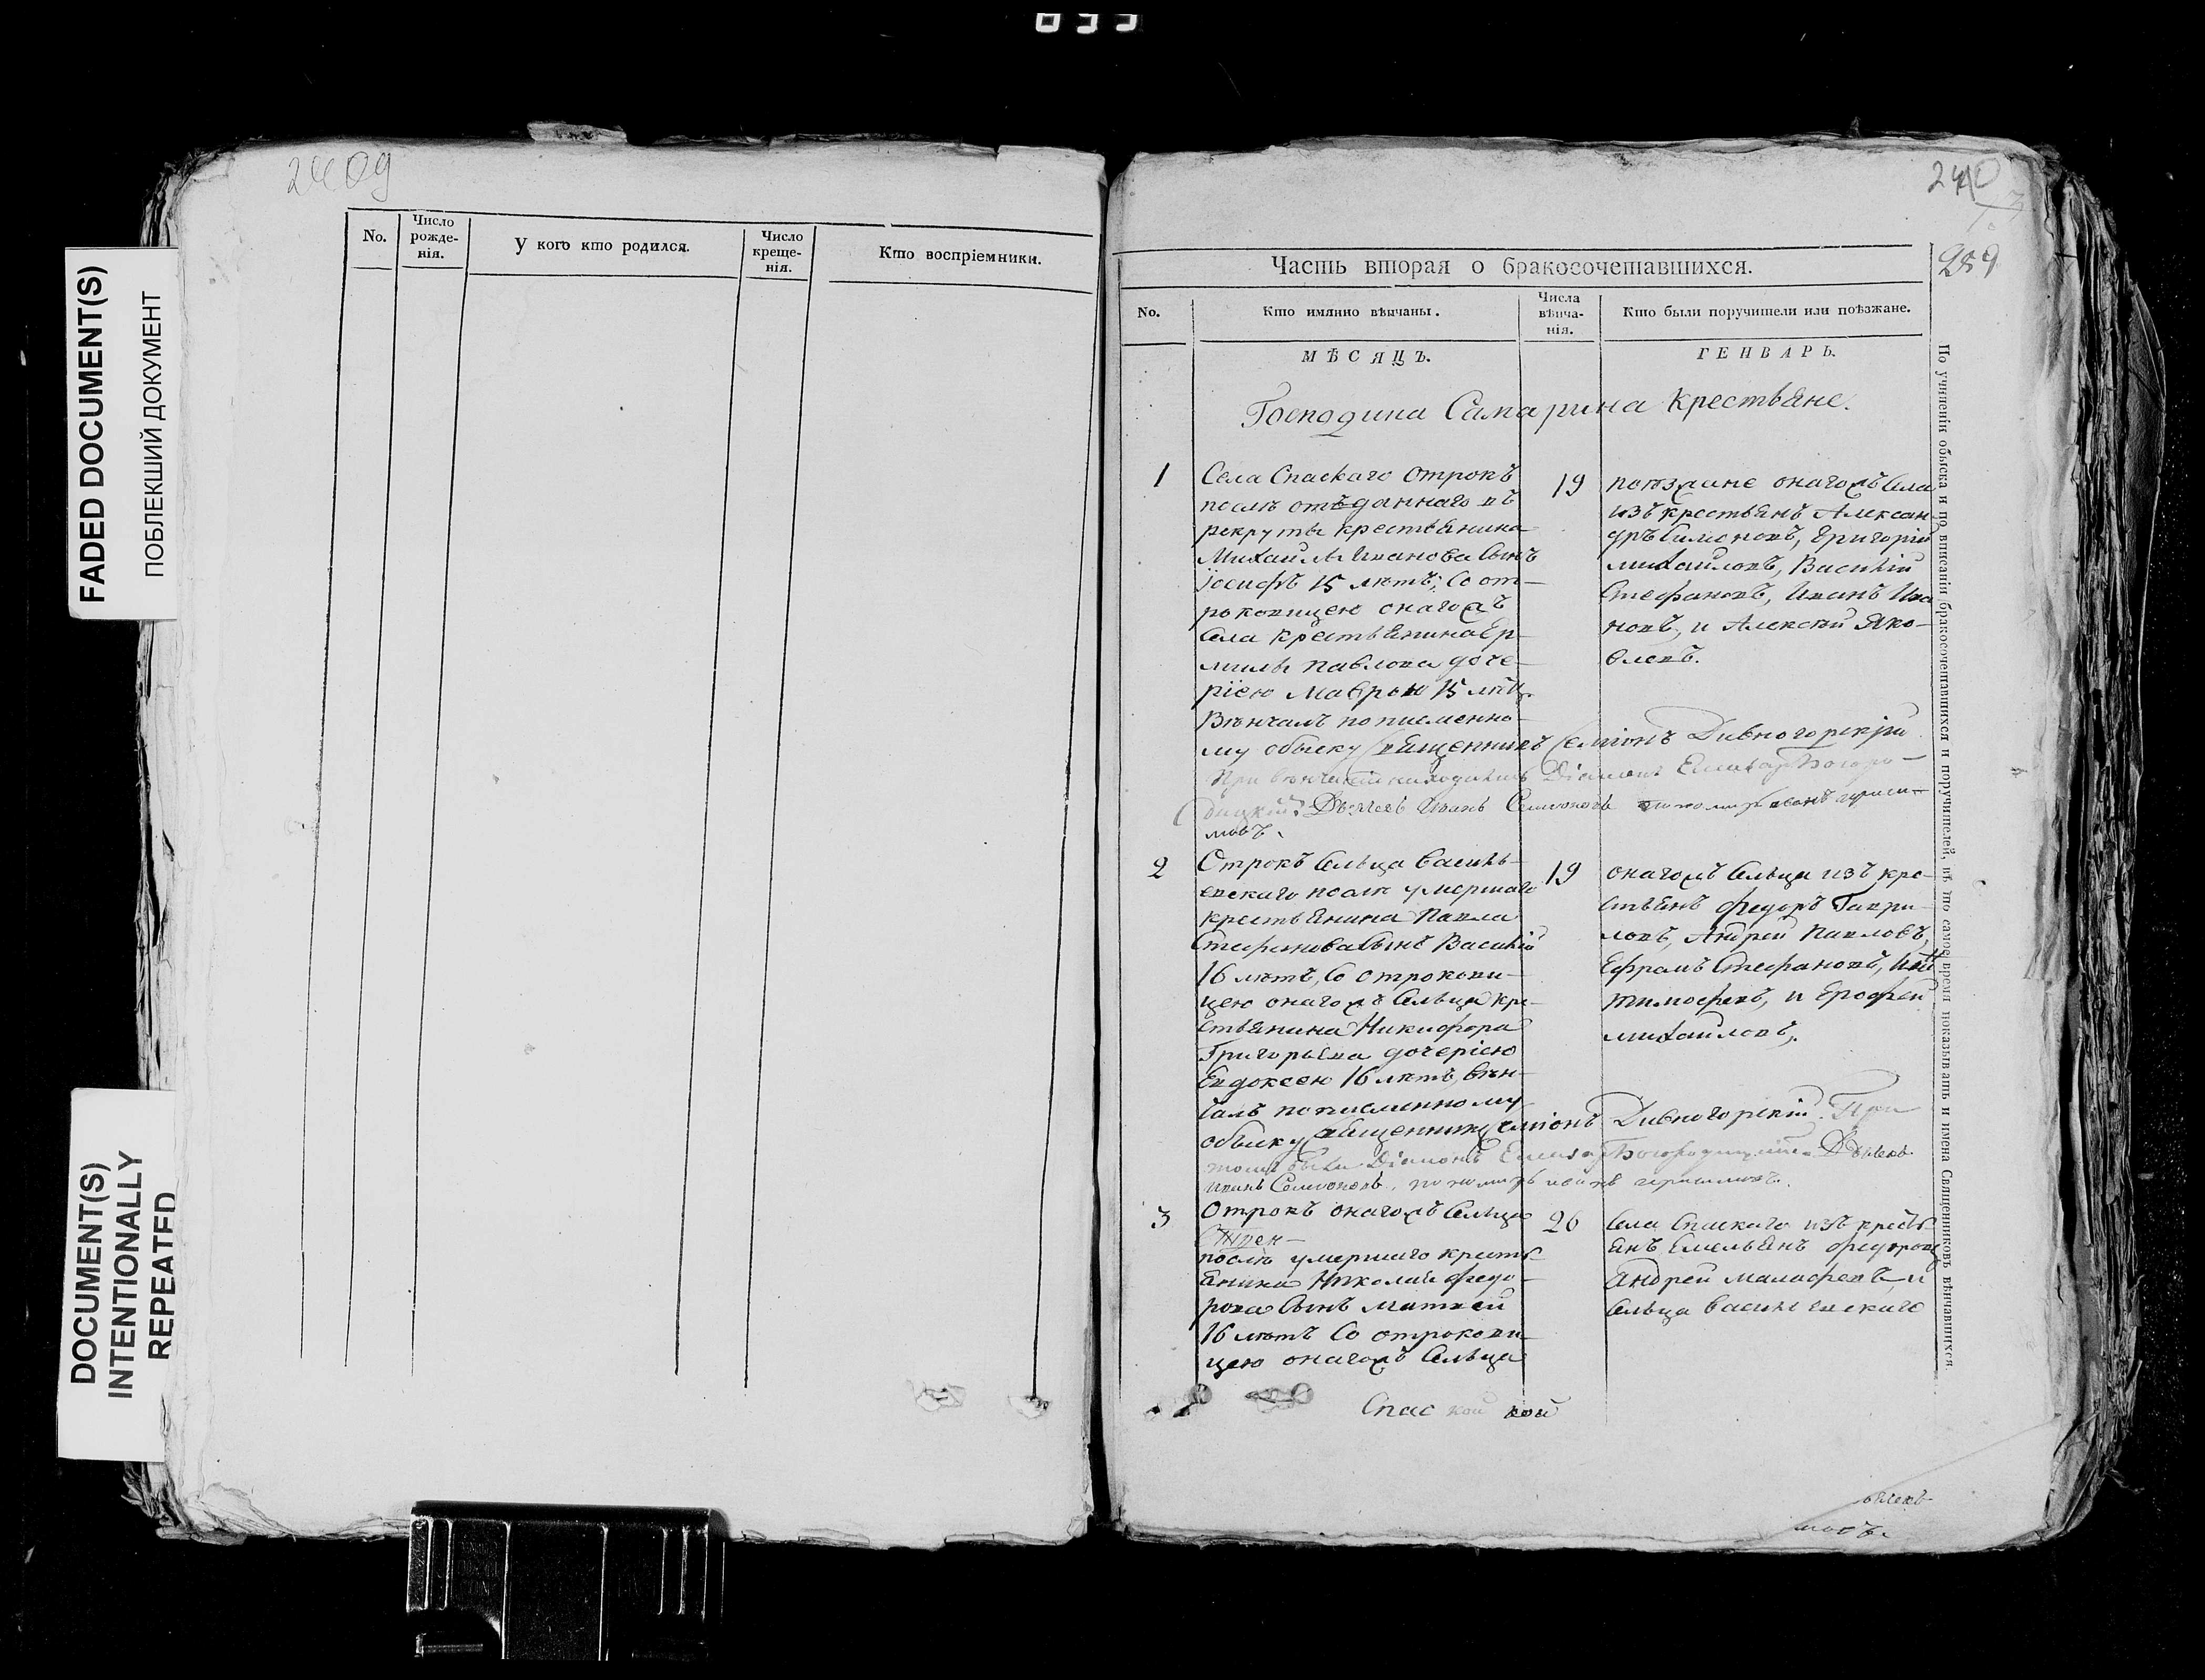 2409
No.
Число рожденія.
У кого кто родился.
Число крещенія.
Кто воспріемники.
FADED DOCUMENT(S)
ПОБЛЕКШИЙ ДОКУМЕНТ
DOCUMENT(S)
INTENTIONALLY
REPEATED
240
Часть вторая о бракосочетавшихся.
No.
Кто имянно вѣнчаны.
Числа вѣнчанія.
Кто были поручители или поѣзжане.
МѢСЯЦЪ.
ГЕНВАРЬ.
Господина Самарина крестьяне.
1
Села Спаскаго отрокъ
послѣ отъданнаго въ
рекруты крестьянина
Михаила Иванова сынъ
Іосифъ 15 лѣтъ, со от-
роковицею онагожъ
села крестьянина Ер-
милы Павлова доче-
рїею Маврою 15 лѣтъ.
Вѣнчалъ по писменно-
му обыску священникъ Семіонъ Дивногорскій
При вѣнчаніи находились Діаконъ Богоро-
дицкій. Дьячекъ Иванъ Семионовъ пономарь
мовъ.
19
поѣзжане онагожъ села
изъ крестьянъ Алексан-
дръ Симоновъ, Григорій
Михайловъ, Василій
Стефановъ, Иванъ Ива-
новъ, и Алексѣй Яко-
влевъ.
2
Отрокъ сельца Василь-
евскаго послѣ умершаго
крестьянина Павла
Стефанова сынъ Василій
16 лѣтъ, со отрокови-
цею онагожъ сельца кре-
стьянина Никифора
Григорьева дочерїею
Евдоксею 16 лѣтъ, вѣн-
чалъ по писменному
обыску священникъ Семіонъ Дивногорскій. При
томъ были Діаконъ Богородицкій Дьячекъ
Иванъ Семионовъ, пономарь
19
онагожъ сельца изъ кре-
стьянъ Федоръ Гаври-
ловъ, Андрей Павловъ,
Ефремъ Стефановъ,
Тимофеевъ, и Ерофей
Михайловъ.
3
Отрокъ онагожъ сельца
послѣ умершаго кресть-
янина Николая Федо-
рова сынъ Матвей
16 лѣтъ со отрокови-
цею онагожъ сельца
26
Села Спаскаго изъ кресть-
янъ Емельянъ Федоровъ
Андрей Малафеевъ, и
сельца Васильевскаго
Спас кой кой
По учиненіи обыска и по вписаніи бракосочетавшихся и поручителей, въ то самое время показывать и имена Священниковъ вѣнчавшихся.
мовъ.